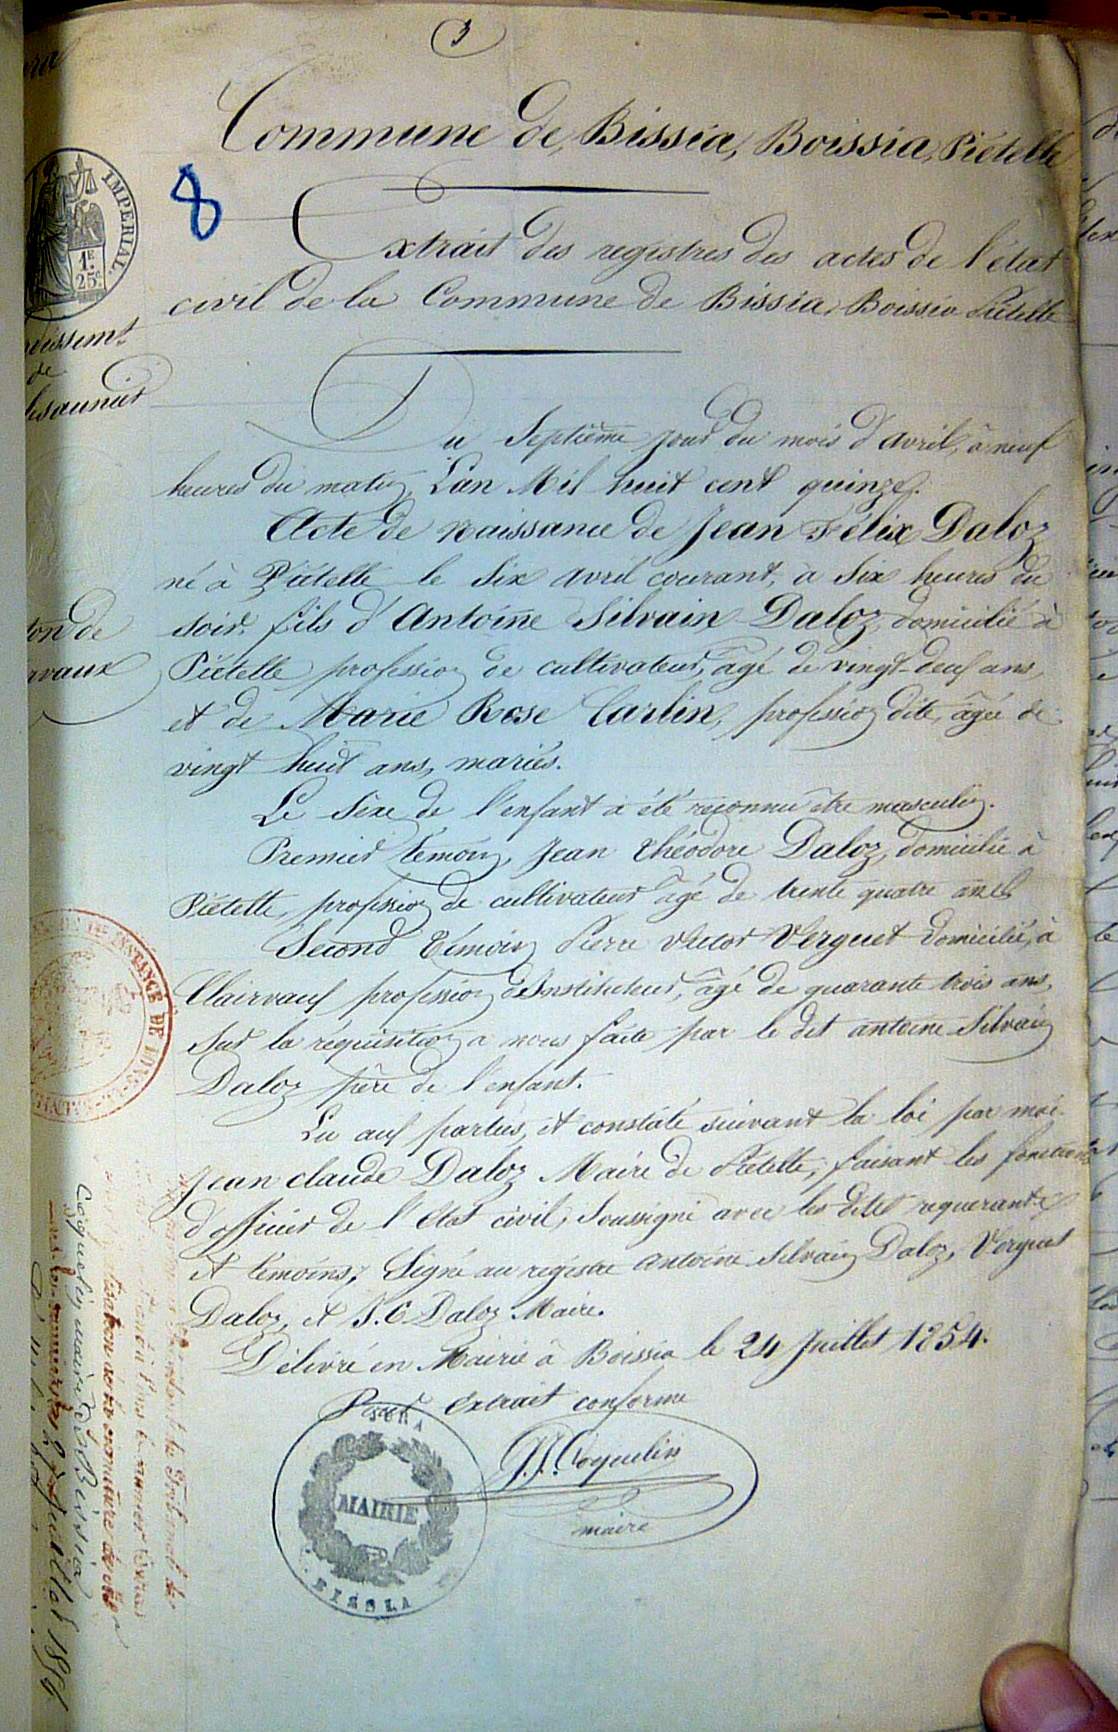 3
Commune de Bissia, Boissia, Piételle
8
IMPERIAL.
1F.
25c
Extrait des registres des actes de l'état
civil de la Commune de Bissia, Boissia Piételle
de
Du Septième jour du mois d'avril, à neuf
heures du matin, L'an Mil huit cent quinze.
Acte de naissance de Jean Félix Daloz
né à Piételle le Six avril courant, à Six heures du
soir, fils d'Antoine Silvain Daloz, domicilié à
Piételle profession de cultivateur, âgé de vingt-deux ans,
et de Marie Rose Carlin, profession dite, âgée de
vingt huit ans, mariés.
Le Sèxe de l'enfant a été reconnu être masculin.
Premier témoin, Jean Théodore Daloz, domicilié à
Piételle, profession de cultivateur âgé de trente quatre ans
Second Témoin Pierre Victor Verguet domicilié, à
Clairvaux profession d'Instituteur, âgé de quarante trois ans,
Sur la réquisition a nous faite par le dit antoine Silvain
Daloz père de l'enfant.
Lu aux parties, et constaté suivant la loi par moi
Jean claude Daloz Maire de Piételle, faisant les fonctions
d'officier de l'Etat civil, Soussigné avec les dites requerants
et témoins, Signé au régistre antoine Silvain Daloz, Verguet
Daloz, et J.C. Daloz Maire.
Délivré en Mairie à Boissia le 24 Juillet 1854.
Pour extrait conforme
Coquelin
maire
JURA
MAIRIE
INSTANCE DE LONS
Coquelin, maire de Bissia
Juillet 1854